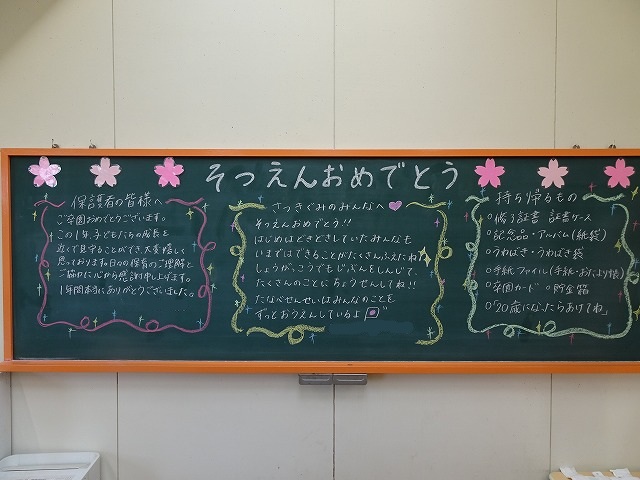 そつえんおめでとう
保護者の皆様へ
ご卒園おめでとうございます。
この1年、子どもたちの成長を
近くで見守ることができ、大変嬉しく
思っております。日々の保育のご理解と
ご協力に心から感謝申し上げます。
1年間本当にありがとうございました。
さつきぐみのみんなへ
そつえんおめでとう!!
はじめはどきどきしていたみんなも
いまではできることがたくさんふえたね
しょうがっこうでもじぶんをしんじて、
たくさんのことにちょうせんしてね!!
たなべせんせいはみんなのことを
ずっとおうえんしているよ
持ち帰るもの
○修了証書 証書ケース
○記念品・アルバム(紙袋)
○うわばき・うわばき袋
○手紙ファイル(手紙・おたより帳)
○卒園カード ○貯金箱
○「20歳になったらあけてね」